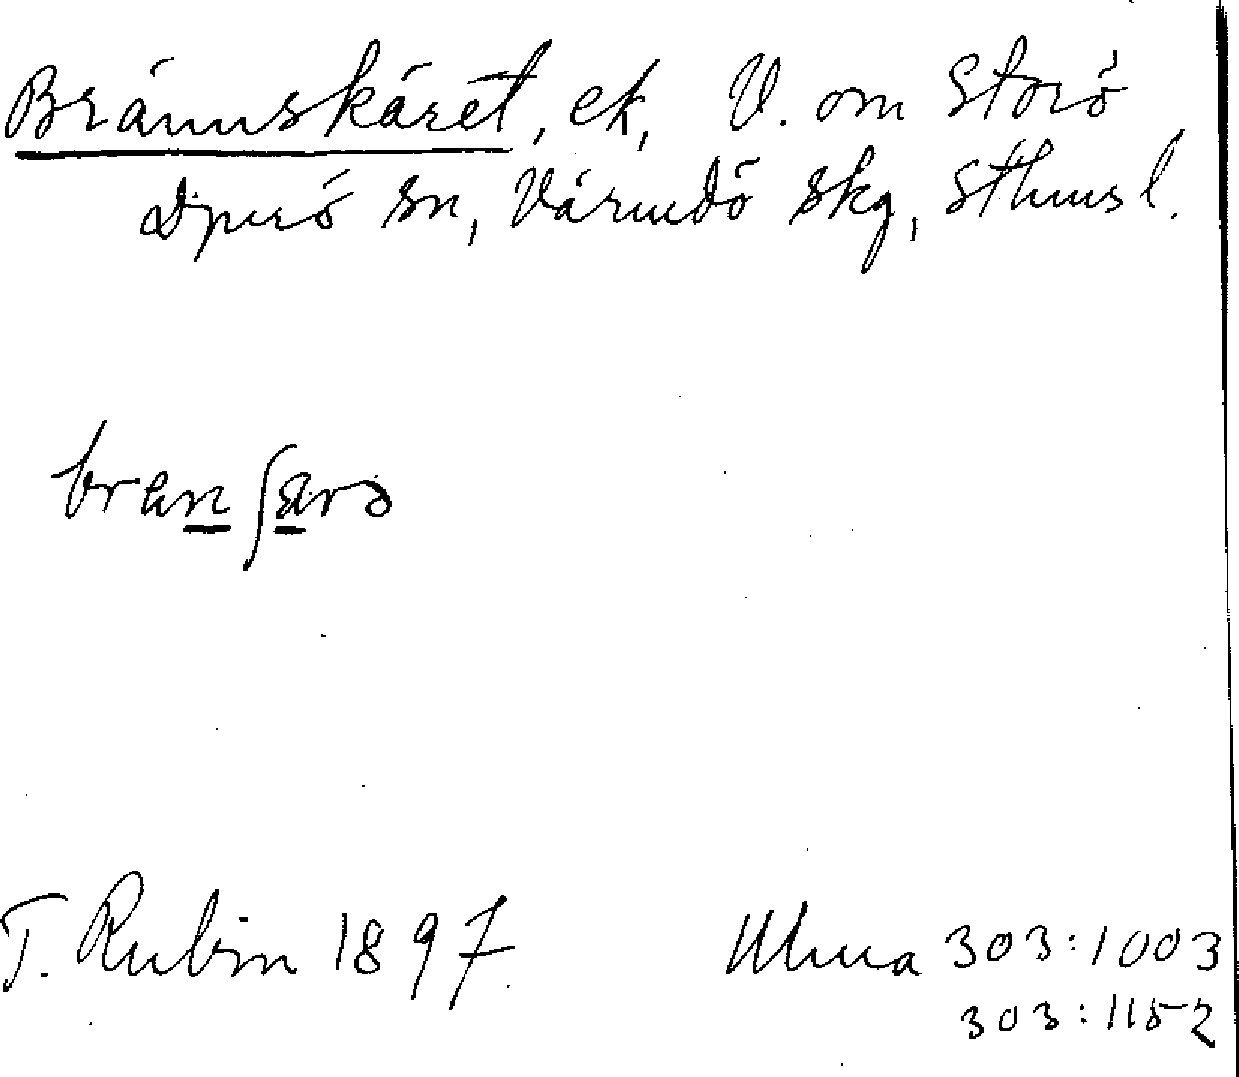 Brännskäret, ek, V. om Storö
Djurö sn, Värmdö skg, Sthmsl.
bran ʃärə
T. Rubin 1897.
Ulma 303:1003
303:1152